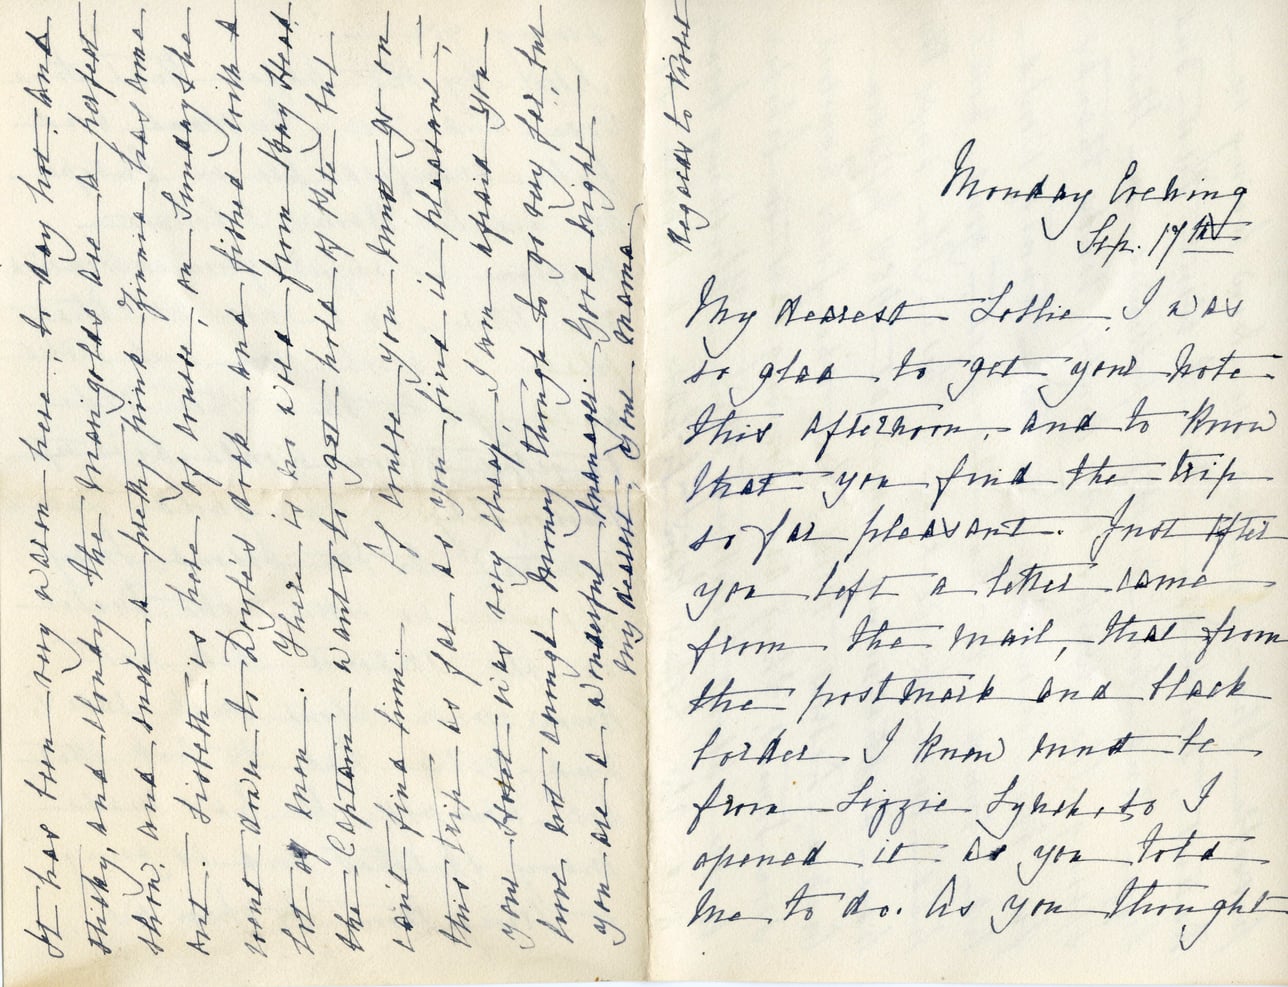 Monday Evening
Sep. 17th
My dearest Lollie, I was
so glad to get your note
this afternoon, and to know
that you find the trip
so far pleasant. Just after
you left a letter came
from the mail, that from
the postmark and black
border I knew must be
from Lizzie Lynch, so I
opened it as you told
me to do. As you thought
It has been very warm here, to day hot. and
sticky, and cloudy. The marigolds are a perfect
show, and such a pretty pink Zinnia has come
out. Lisbeth is here of course, on Sunday she
went down to Doyle's dock and fished with a
lot of men. There is no word from Bay Head.
the Captain wants to get hold of Kite but
can't find him. Of course you must go on
this trip as far as you find it pleasant,
your hotel was very cheap, I am afraid you
have not enough money though to go very far, but
you are a wonderful manager. Good night
my dearest, your Mama.
Regards to